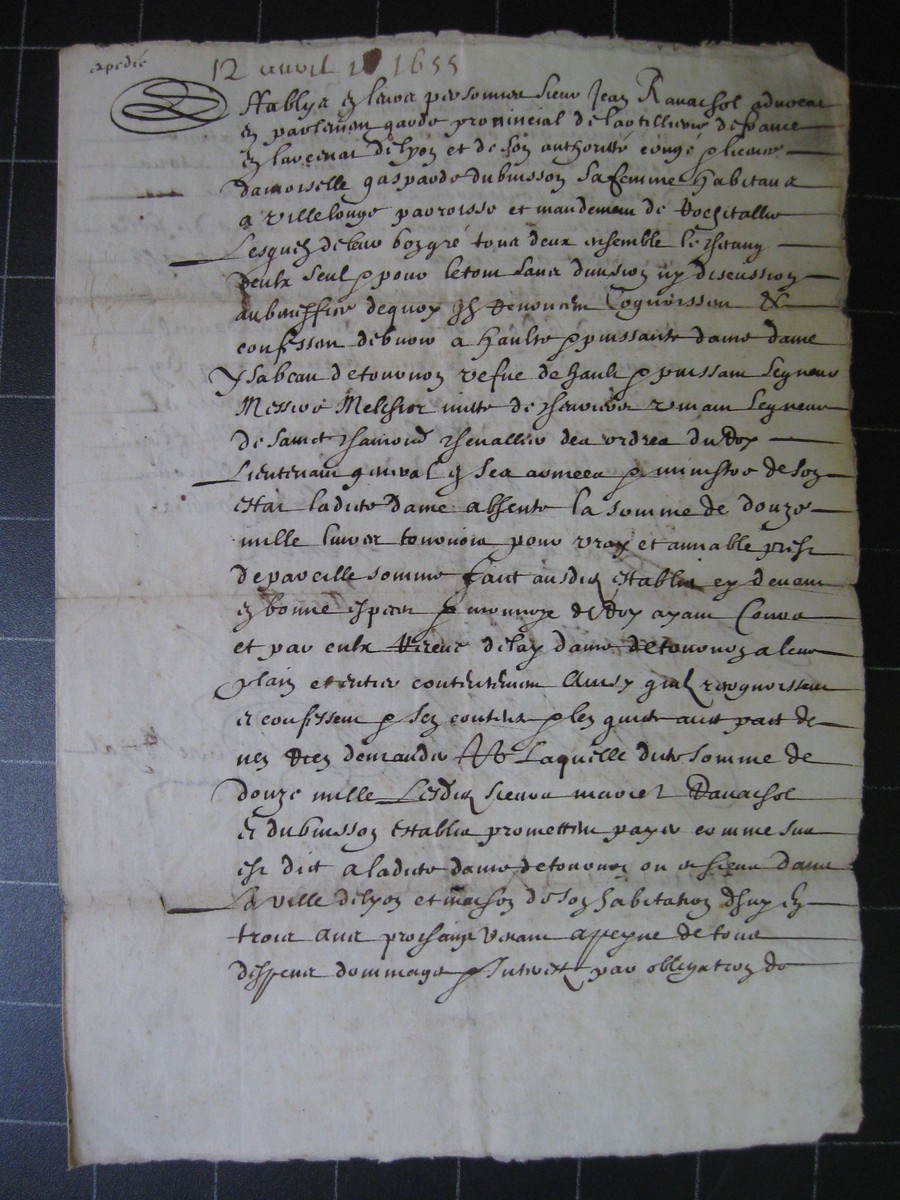 expedié
12 avril 1655
Establys en leurs personnes sieur Jean Ravachol advocat
en parlement garde provincial de lartillierie de france
en larcenat de lyon et de son authorité conge & licence
damoiselle gasparde dubuisson sa femme habitans
a villelonge parroisse et mandement de Rochitallie
Lesquelz de leur bon gré tous deux ensemble & chacung
deulx seul & pour le tout sans division ny discussion
au beneffice dequoy ilz Renoncent Cognoissent &
confessent debvoir a haulte & puissante dame dame
Ysabeau de tournon vefve de hault & puissant seigneur
Messire Melchior mitte de chevrieres vivant seigneur
de sainct chamond chevallier des ordres du Roy
Lieutenant general en ses armees & ministre de son
estat ladicte dame absente la somme de douze
mille livres tournois pour vray et amiable prest
de pareille somme faict ausdits establis cy devant
en bonne especes & monnoye de Roy ayant Cours
et par eulx Receue de lay dame de tournon a leur
plain et entier contentement Ainsy quilz recognoissent
et confessent & sen contente & len quitte avec pact de
nen Rien demander Laquelle dicte somme de
douze mille Lesdits sieurs mariez Ravachol
et dubuisson establis promettent payer comme sus
est dict a ladicte dame de tournon ou es siens dans
La ville de lyon et maison de son habitation dhuy en
trois ans prochains venant a peyne de tous
despens dommages & Interestz par obligation de